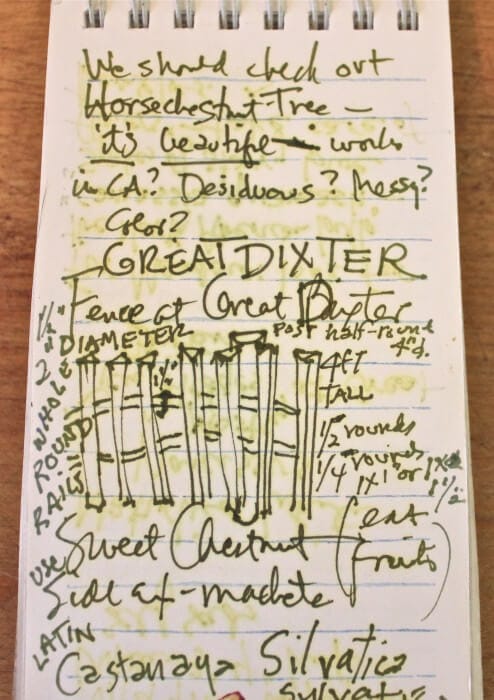 We should check out
Horsechestnut Tree —
it's beautiful — works
in CA? Desiduous? Messy?
Color?
GREAT DIXTER
Fence at Great Dixter
DIAMETER
POST half-round
4" d.
1 1/2"
2"
WHOLE
ROUND
RAILS
4FT
TALL
1/2 rounds
1/4 rounds
1x1 or 1x
1 1/2
Sweet Chestnut (eat
fruits)
USE
Side ax - machete
LATIN
Castanaya Silvatica
Silvatica